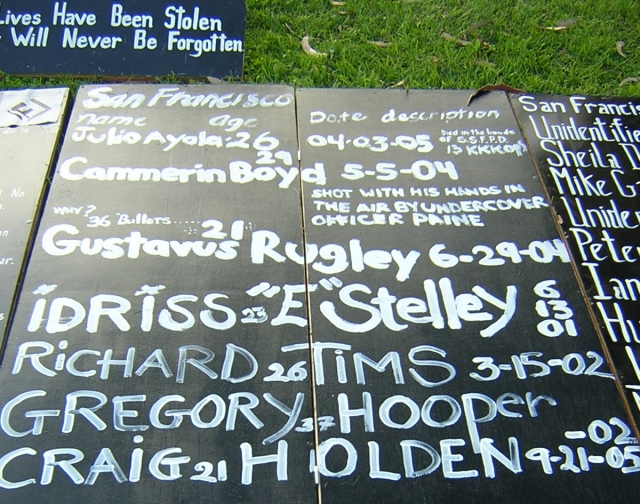 Lives Have Been Stolen
Will Never Be Forgotten
San Francisco
name age Date description
Julio Ayala 26 04-03-05 Died in the hands of S.F.P.D.
Cammerin Boyd 29 5-5-04
SHOT WITH HIS HANDS IN
THE AIR BY UNDERCOVER
OFFICER PAINE
why?
36 Bullets
Gustavus Rugley 21 6-29-04
iDRiSS 23 "E" Stelley 6
13
01
RiCHARD 26 TiMS 3-15-02
GREGORY 37 HOOper
-02
CRAiG 21 HOLDEN 9-21-05
San Francis
Unidentifie
Sheila D
Mike G
Unide
Peter
Ian
Hu
No
ar.